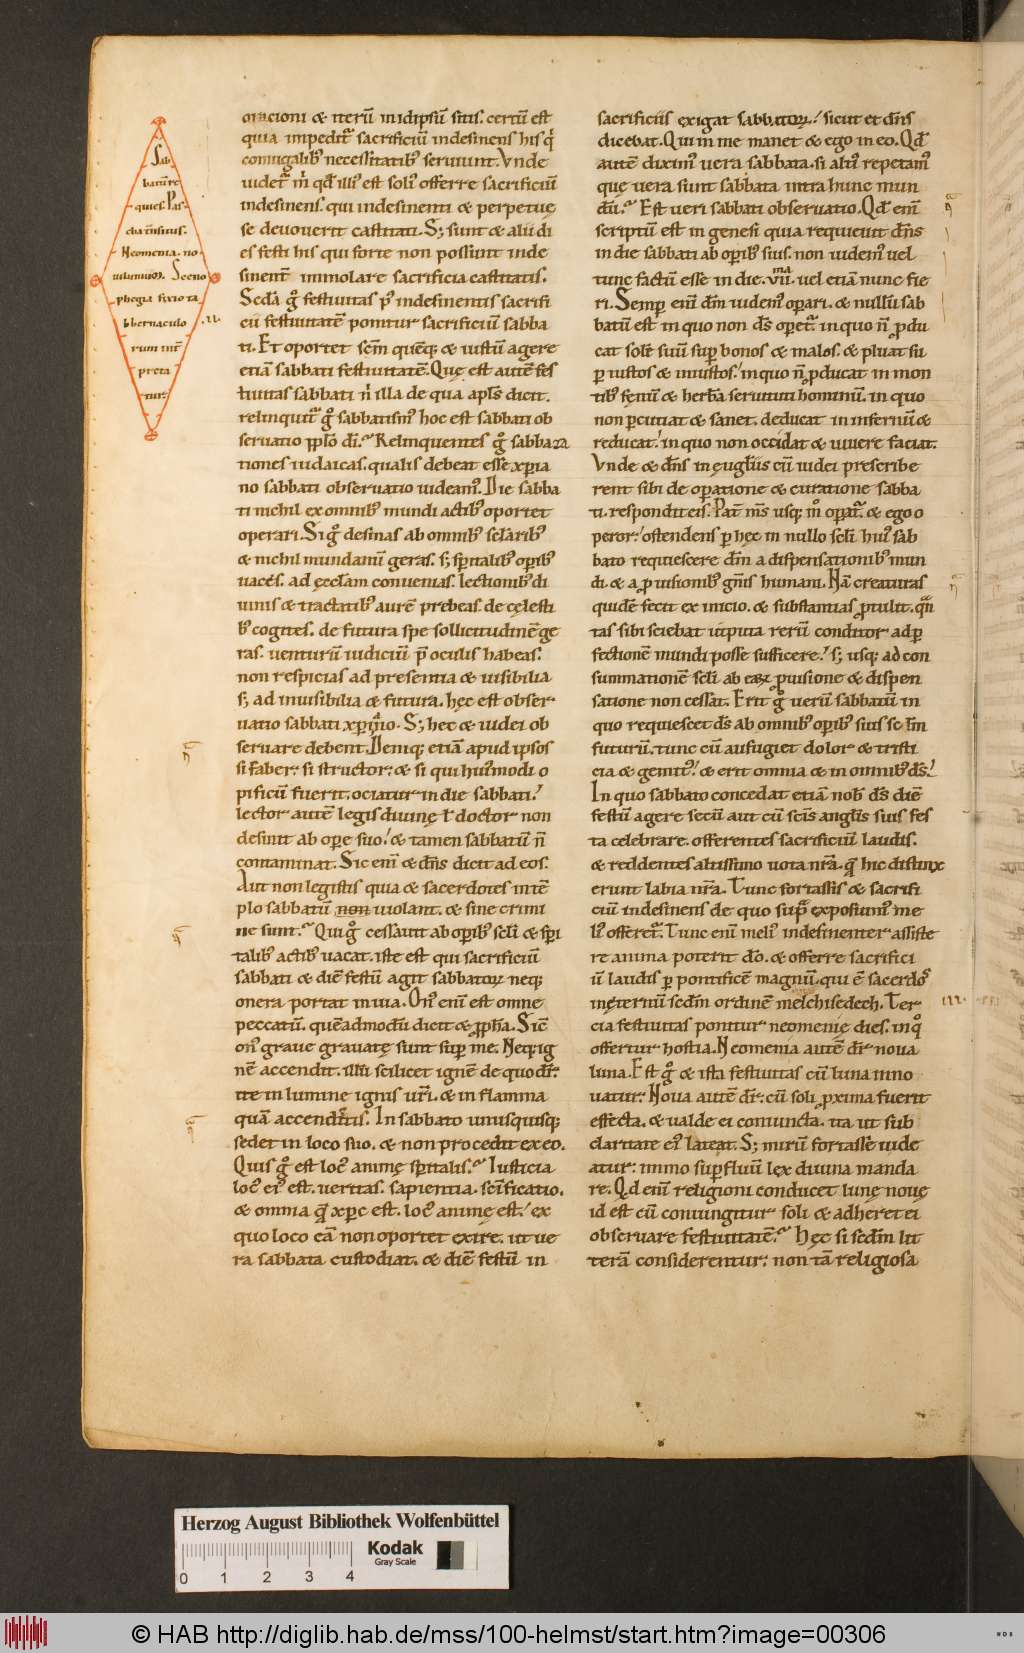 Sab
batu͞ re
quies. Pas
cha i͞nsitus.
Neomenia. no
uiluniu͞m. Sceno
phegia fixio ta
bernaculo
rum int͞
preta
tur.
.II.
oracioni & iteru͞ in idipsu͞ sitis. certu͞ est
quia impedit᷑ sacrificiu͞ indesinens his q̍
coniugalib᷒ necessitatib᷒ seruiunt. Vnde
uidet᷑ m̍ qd̄ illi᷒ est soli᷒ offerre sacrificiu͞
indesinens. qui indesinenti & perpetuę
se deuouerit castitati. S; sunt & alii di
es festi his qui forte non possunt inde
sinent͛ immolare sacrificia castitatis.
Scd͞a g̊ festiuitas p᷒ indesinentis sacrifi
cii festiuitate͞ ponitur sacrificiu͞ sabba
ti. Et oportet sc͞m que͞q; & iustu͞ agere
etia͞ sabbati festiuitate͞. Quę est aute͞ fes
tiuitas sabbati n̍ illa de qua apl͞s dicit.
relinquit᷑ g̊ sabbatism᷒ hoc est sabbati ob
seruatio pp͞lo d͞i. Relinquentes g̊ sabbaza
tiones iudaicas. qualis debeat esse xp͞ia
no sabbati obseruatio uideam᷒. Die sabba
ti nichil ex omnib᷒ mundi actib᷒ oportet
operari. Si g̊ desinas ab omnib᷒ sc͞larib᷒
& nichil mundanu͞ geras. s; sp͞italib᷒ op̱ib᷒
uaces. ad ęccl͞am conuenias. lectionib᷒ di
uinis & tractatib᷒ aure͞ prebeas. de cęlesti
b᷒ cogites. de futura spe sollicitudine͞ ge
ras. uenturu͞ iudiciu͞ p͞ oculis habeas.
non respicias ad presentia & uisibilia
s; ad inuisibilia & futura. hęc est obser
uatio sabbati xp͞iano. S; hec & iudei ob
seruare debent. Deniq; etia͞ apud ipsos
si faber. si structor. & si qui hui᷒modi o
pificu͞ fuerit. ociatur in die sabbati.
lector aute͞ legis diuinę ł doctor non
desinit ab op̱e suo. & tamen sabbatu͞ n͞
contaminat. Sic eni͞ & dn͞s dicit ad eos.
Aut non legistis quia & sacerdotes in te͞
plo sabbatu͞ non uiolant. & sine crimi
ne sunt. Qui g̊ cessauit ab op̱ib᷒ sc͞li & sp͞i
talib᷒ actib᷒ uacat. iste est qui sacrificiu͞
sabbati & die͞ festu͞ agit sabbatoꝝ neq;
onera portat in uia. On᷒ eni͞ est omne
peccatu͞. que͞admodu͞ dicit & p͞ph͞a. Sic͞
on᷒ graue grauatę sunt sup̱ me. Neq; ig
ne͞ accendit. illu͞ scilicet igne͞ de quo dr͞.
ite in lumine ignis ur͞i. & in flamma
qua͞ accenditis. In sabbato unusquisq;
sedet in loco suo. & non procedit ex eo.
Quis g̊ est loc᷒ animę sp͞italis. Iusticia
loc᷒ ei᷒ est. ueritas. sapientia. sc͞ificatio.
& omnia quę xp͞c est. loc᷒ animę est. ex
quo loco ea͞ non oportet exire. ut ue
ra sabbata custodiat. & die͞ festu͞ in
sacrificiis exigat sabbatoꝝ. sicut et dn͞s
dicebat. Qui in me manet & ego in eo. Qd̄
aute͞ dixim᷒ uera sabbata. si alti᷒ repetam᷒
quę uera sunt sabbata intra hunc mun
du͞. Est ueri sabbati obseruatio. Qd̄ eni͞
scriptu͞ est in genesi quia requieuit dn͞s
in die sabbati ab op̱ib᷒ suis. non uidem᷒ uel
tunc factu͞ esse in die .VII.ma uel etia͞ nunc fie
ri. Semp̱ eni͞ dm͞ uidem᷒ op̱ari. & nullu͞ sab
batu͞ est in quo non ds͞ op̱et᷑. in quo n͞ ꝓdu
cat sole͞ suu͞ sup̱ bonos & malos. & pluat su
p̱ iustos & iniustos. in quo n͞ ꝓducat in mon
tib᷒ fęnu͞ & herba͞ seruituti hominu͞. in quo
non p̱cutiat & sanet. deducat in infernu͞ &
reducat. in quo non occidat & uiuere faciat.
Vnde & dn͞s in ęuglˉiis cu͞ iudei prescribe
rent sibi de op̱atione & curatione sabba
ti. respondit eis. Pat͛ m͞s usq; m̊ op̱at᷑. & ego o
peror. ostendens p̱ hęc in nullo sc͞li hui᷒ sab
bato requiescere dm͞ a dispensationib᷒ mun
di. & a ꝓuisionib᷒ gn͞is humani. Na͞ creaturas
quide͞ fecit ex inicio. & substantias ꝓtulit. qn͞
tas sibi sciebat utputa reru͞ conditor ad p̱
fectione͞ mundi posse sufficere. s; usq; ad con
summatione͞ sc͞li ab eaꝝ ꝓuisione & dispen
satione non cessat. Erit g̊ ueru͞ sabbatu͞ in
quo requiescet ds͞ ab omnib᷒ op̱ib᷒ suis sc͞lm
futuru͞. tunc cu͞ aufugiet dolor & tristi
cia & gemit᷒. & erit omnia & in omnib᷒ ds͞.
In quo sabbato concedat etia͞ nob͞ ds͞ die͞
festu͞ agere secu͞ aut cu͞ sc͞is anglˉis suis fes
ta celebrare. offerentes sacrificiu͞ laudis.
& reddentes altissimo uota nr͞a. quę hic distinx
erunt labia nr͞a. Tunc fortassis & sacrifi
ciu͞ indesinens de quo sup͛ exposuim᷒ me
li᷒ offeret᷑. Tunc eni͞ meli᷒ indesinenter assiste
re anima poterit d͞o. & offerre sacrifici
u͞ laudis p̱ pontifice͞ magnu͞. qui e͞ sacerdos
in ęternu͞ scd͞m ordine͞ melchisedech. Ter
.III.
cia festiuitas ponitur neomenię dies. in q̊
offertur hostia. Neomenia aute͞ dr͞ noua
luna. Est g̊ & ista festiuitas cu͞ luna inno
uatur. Noua aute͞ dr͞. cu͞ soli ꝓxima fuerit
effecta. & ualde ei coniuncta. ita ut sub
claritate ei᷒ lateat. S; miru͞ fortasse uide
atur. immo sup̱fluu͞ lex diuina manda
re. Qd̄ eni͞ religioni conducet lunę nouę
id est cu͞ coniungitur soli & adheret ei
obseruare festiuitate͞. Hęc si scd͞m lit
tera͞ considerentur. non ta͞ religiosa
Herzog August Bibliothek Wolfenbüttel
Kodak
Gray Scale
0 1 2 3 4
© HAB http://diglib.hab.de/mss/100-helmst/start.htm?image=00306